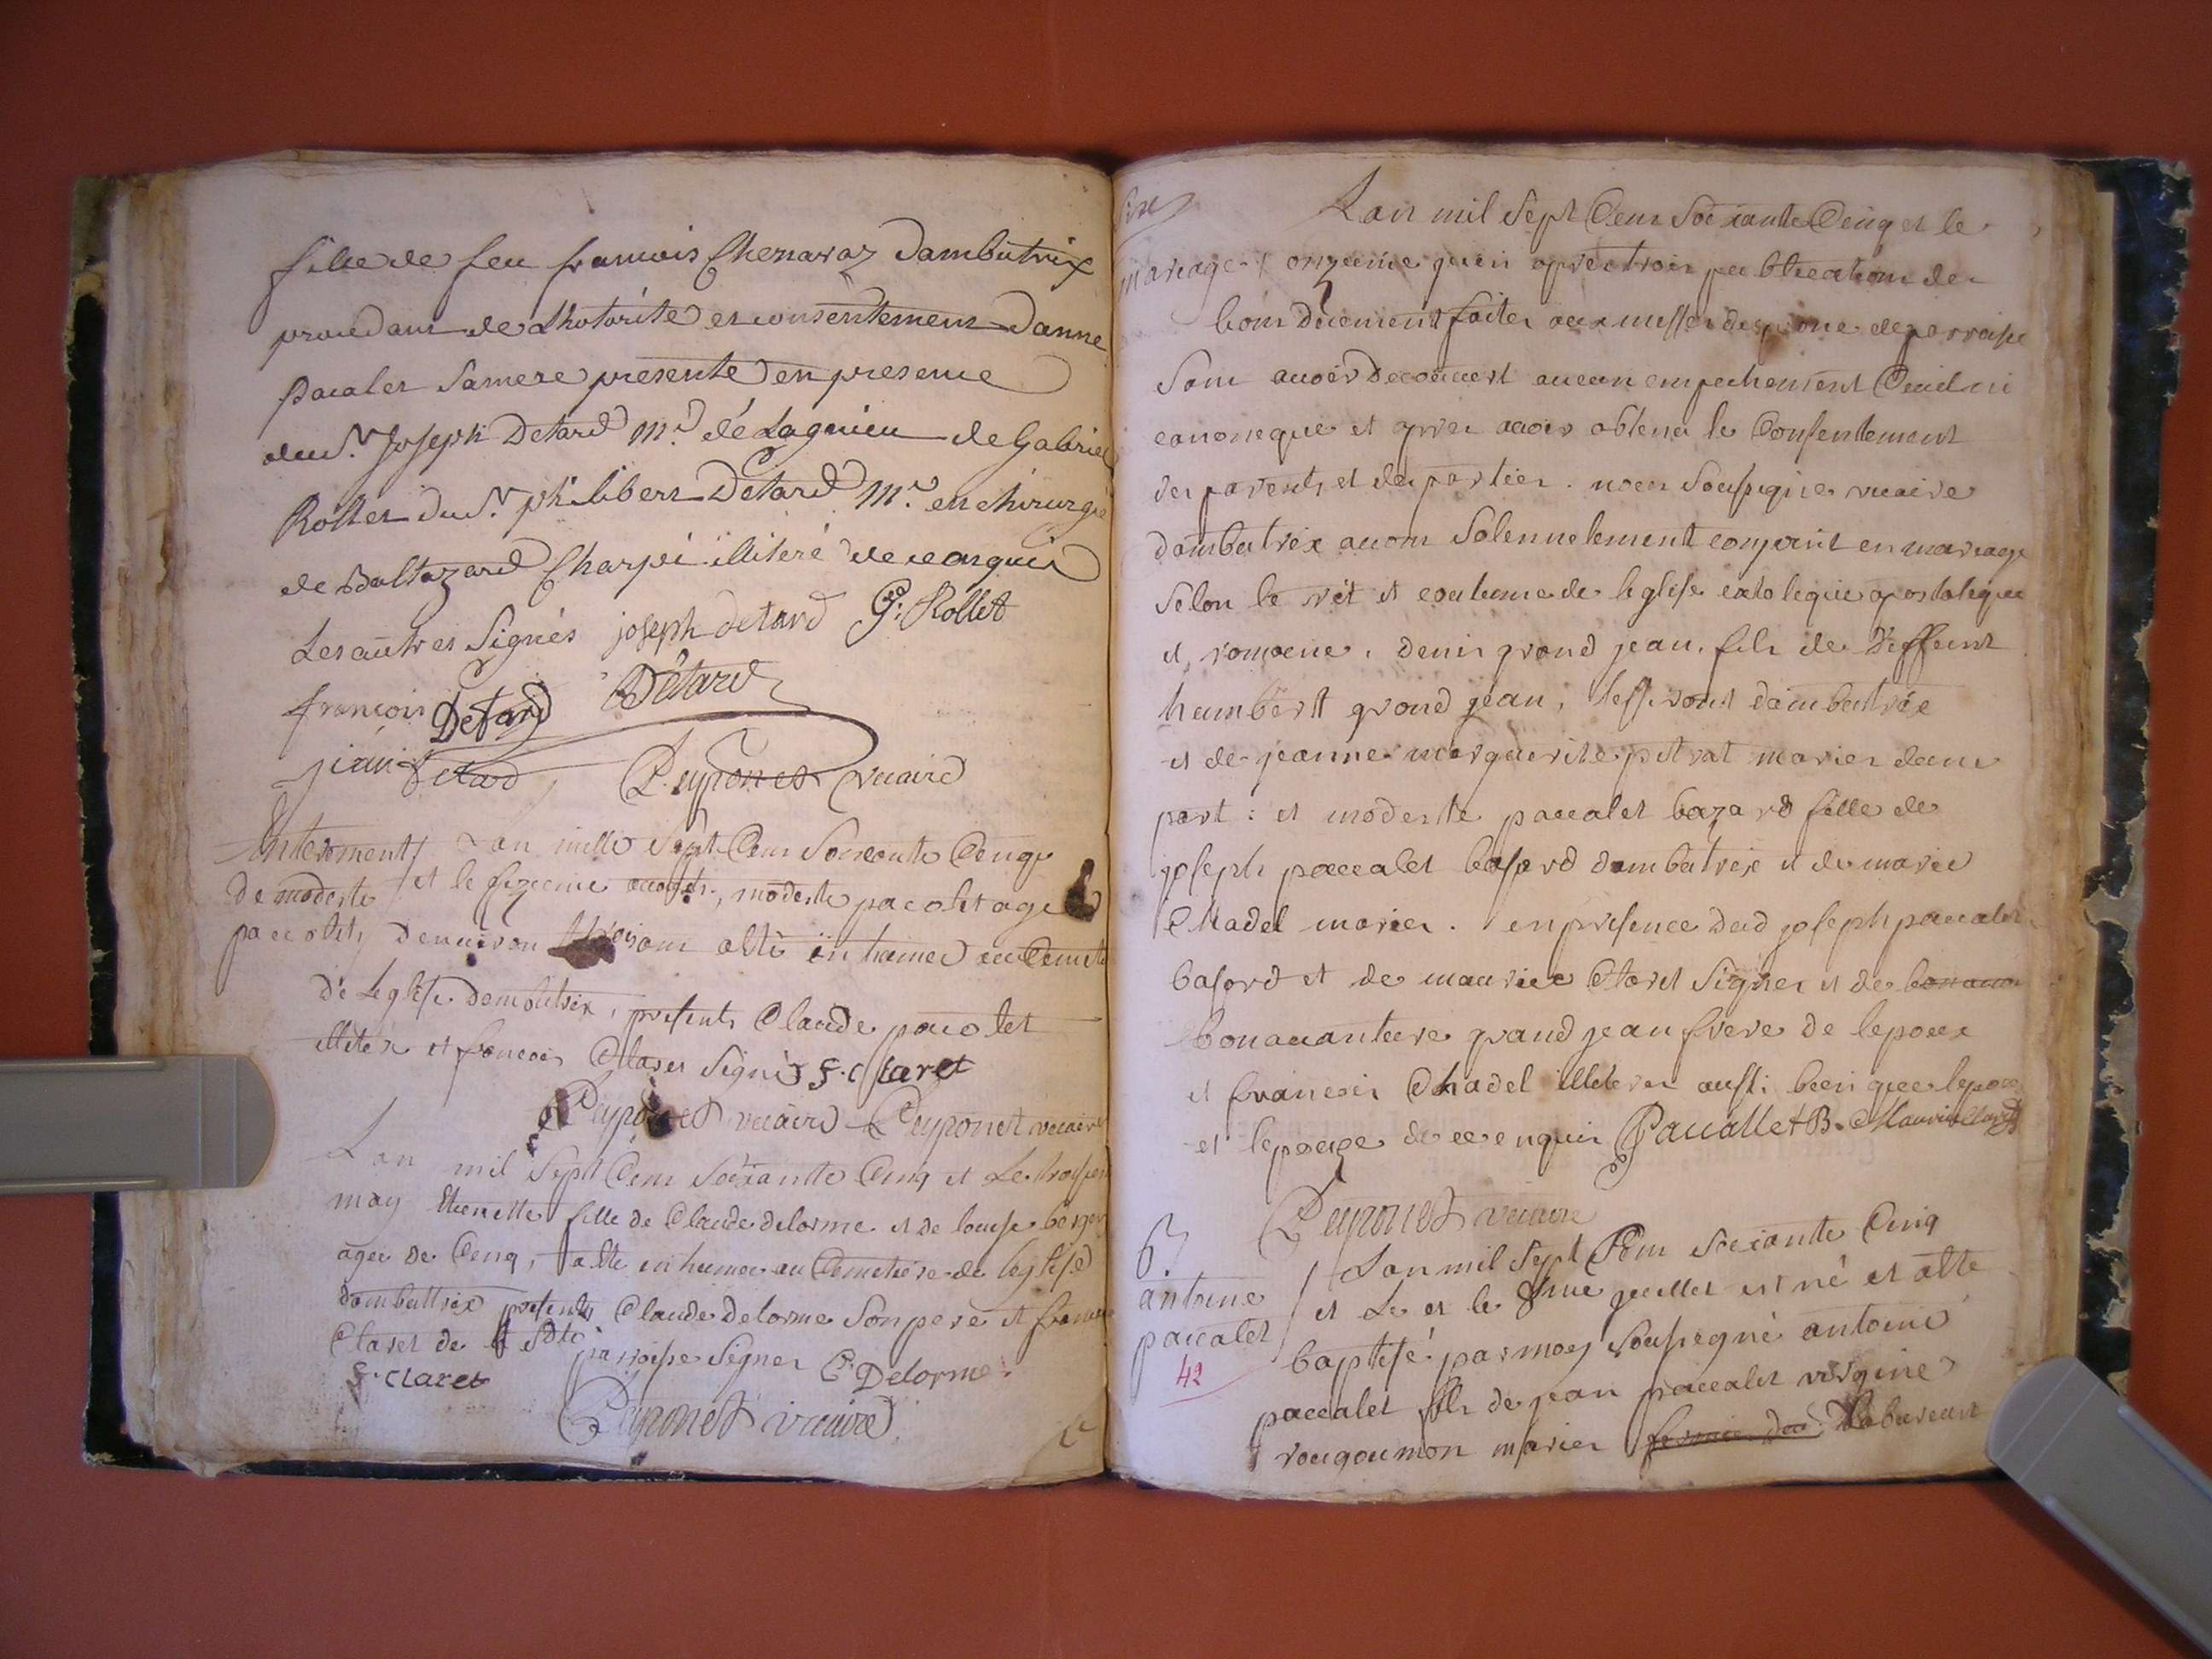 fille de feu francois Chenavaz dambutrix
procedant de Lhotorité et consentement danne
Pacalet sa mere presente en presence
du sr. Joseph Detard md. de Lagnieu de Gabriel
Rollet du sr. philibert Detard Me. en chirurgie
de Baltazard Charpi illiteré de ce enquis
Les autres Signés joseph detard G. Rollet
francois Detard Detard
jean Detard Peyronet vicaire
Enterement Lan mille Sept Cens Soixante Cenq
De modeste et le sizieme, modeste pacolet agé
pacolet denviron ans a été inhumé au Cimetie
de Leglise dambutrix, presents Claude pacolet
illiteré et francois Claret Signé F. Claret
Peyronet vicaire Peyronet vicaire
Lan mil Sept Cens Soixante Cinq et Le
may Etienette fille de Claude delorme et de louise berger
agée de Cenq, a ete inhumée au Cimetiére de leglise
dambuttrix presents Claude Delorme Son pere et francois
Claret de sdte parroisse Signer C. Delorme
F. Claret
Peyronet vicaire
Lan mil Sept Cens Soixante Cenq et le
Mariage onzieme juin apres trois publications de
bans düement faites aux messes de prone de parroisse
Sans avoir decouvert aucun empechement Civil ni
canonique et apres avoir obtenu le Consentement
des parents et des parties. nous Soussigné vicaire
dambutrix avons Solennelement conjoint en mariage
Selon le rit et coutume de leglise catolique apostolique
et romaine, denis grand jean, fils de deffunt
humbert grand jean, dambutrix
et de jeanne marguerite pitrat mariés dune
part : et modeste paccalet bazard fille de
joseph paccalet basard dambutrix et de marie
Chadel mariés. en presence dud joseph paccalet
basard et de maurice Claret Signer et de bonavan
bonavanture grand jean frere de lepoux
et francois Chadel illiteres aussi bien que lepoux
et lepouze de ce enquis Paccallet B. Mauris Claret
Peyronet vicaire
B. Lan mil Sept Cens Soixante Cinq
antoine et Le et le 8me juillet est né et a été
paccalet baptisé par moy Soussigné antoine
42
paccalet fils de jean paccalet virgine
rougoumon mariés laboureur